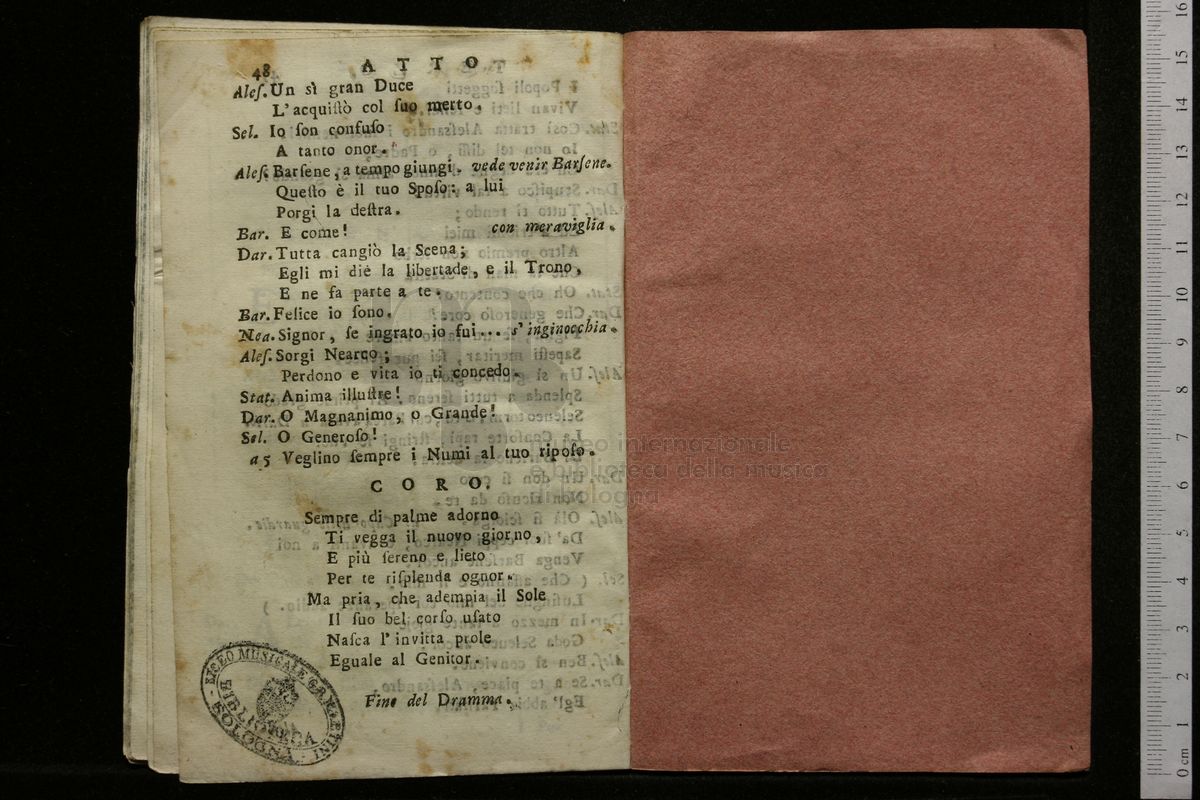 48 ATTO
Aleſ. Un sì gran Duce
L'acquiſtò col ſuo merto.
Sel. Io ſon confuſo
A tanto onor.
Aleſ. Barſene, a tempo giungi. vede venir Barſene.
Queſto è il tuo Spoſo: a lui
Porgi la deſtra.
Bar. E come! con meraviglia.
Dar. Tutta cangiò la Scena;
Egli mi diè la libertade, e il Trono,
E ne fa parte a te.
Bar. Felice io ſono.
Nea. Signor, ſe ingrato io fui... s'inginocchia.
Aleſ. Sorgi Nearco;
Perdono e vita io ti concedo.
Stat. Anima illuſtre!
Dar. O Magnanimo, o Grande!
Sel. O Generoſo!
a 5 Veglino ſempre i Numi al tuo ripoſo.
CORO.
Sempre di palme adorno
Ti vegga il nuovo giorno,
E più ſereno e lieto
Per te riſplenda ognor.
Ma pria, che adempia il Sole
Il ſuo bel corſo uſato
Naſca l'invitta prole
Eguale al Genitor.
Fine del Dramma.
LICEO MUSICALE G.B. MARTINI
BIBLIOTECA
BOLOGNA
museo internazionale
e biblioteca della musica
di bologna
0 cm 1 2 3 4 5 6 7 8 9 10 11 12 13 14 15 16